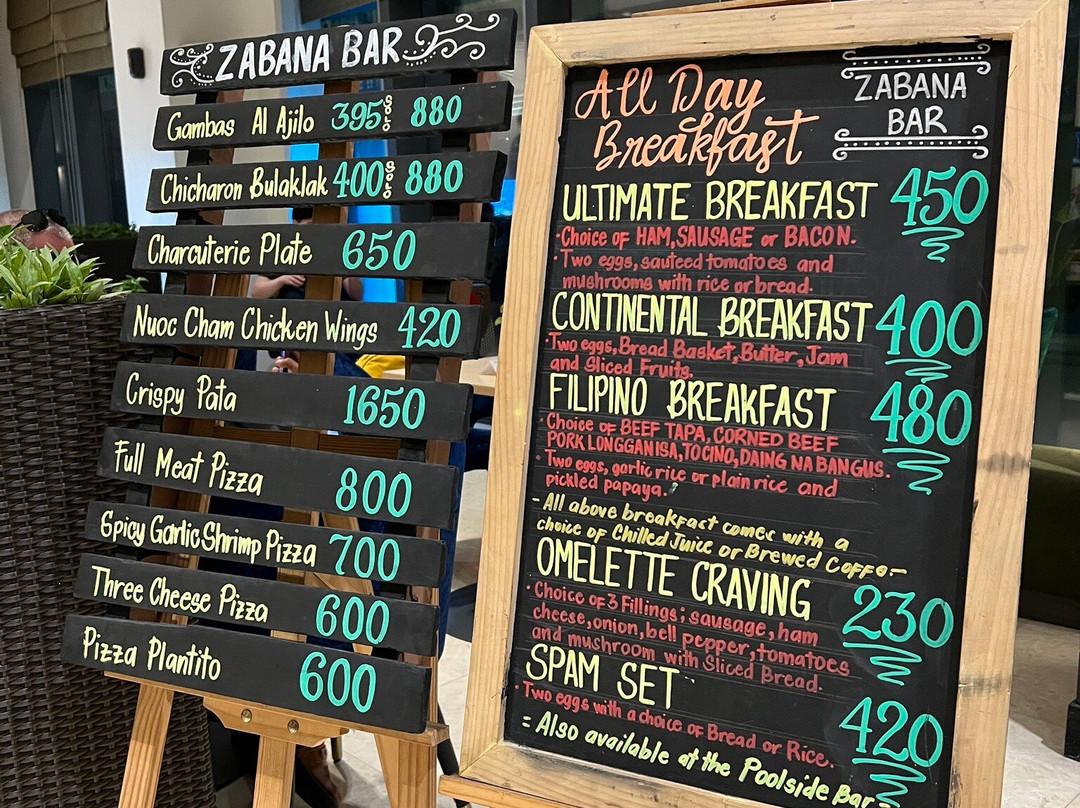 ZABANA BAR
Gambas Al Ajilo 395 880
Chicharon Bulaklak 400 880
Charcuterie Plate 650
Nuoc Cham Chicken Wings 420
Crispy Pata 1650
Full Meat Pizza 800
Spicy Garlic Shrimp Pizza 700
Three Cheese Pizza 600
Pizza Plantito 600
All Day
Breakfast
ZABANA
BAR
ULTIMATE BREAKFAST 450
·Choice of HAM, SAUSAGE or BACON.
·Two eggs, sauteed tomatoes and
mushrooms with rice or bread.
CONTINENTAL BREAKFAST 400
·Two eggs, Bread Basket, Butter, Jam
and Sliced Fruits.
FILIPINO BREAKFAST 480
·Choice of BEEF TAPA, CORNED BEEF
PORK LONGGANISA, TOCINO, DAING NA BANGUS.
·Two eggs, garlic rice or plain rice and
pickled papaya.
- All above breakfast comes with a
choice of Chilled Juice or Brewed Coffe.-
OMELETTE CRAVING 230
·Choice of 3 Fillings; sausage, ham
cheese, onion, bell pepper, tomatoes
and mushroom with Sliced Bread.
SPAM SET 420
·Two eggs with a choice of Bread or Rice.
= Also available at the Poolside Bar=